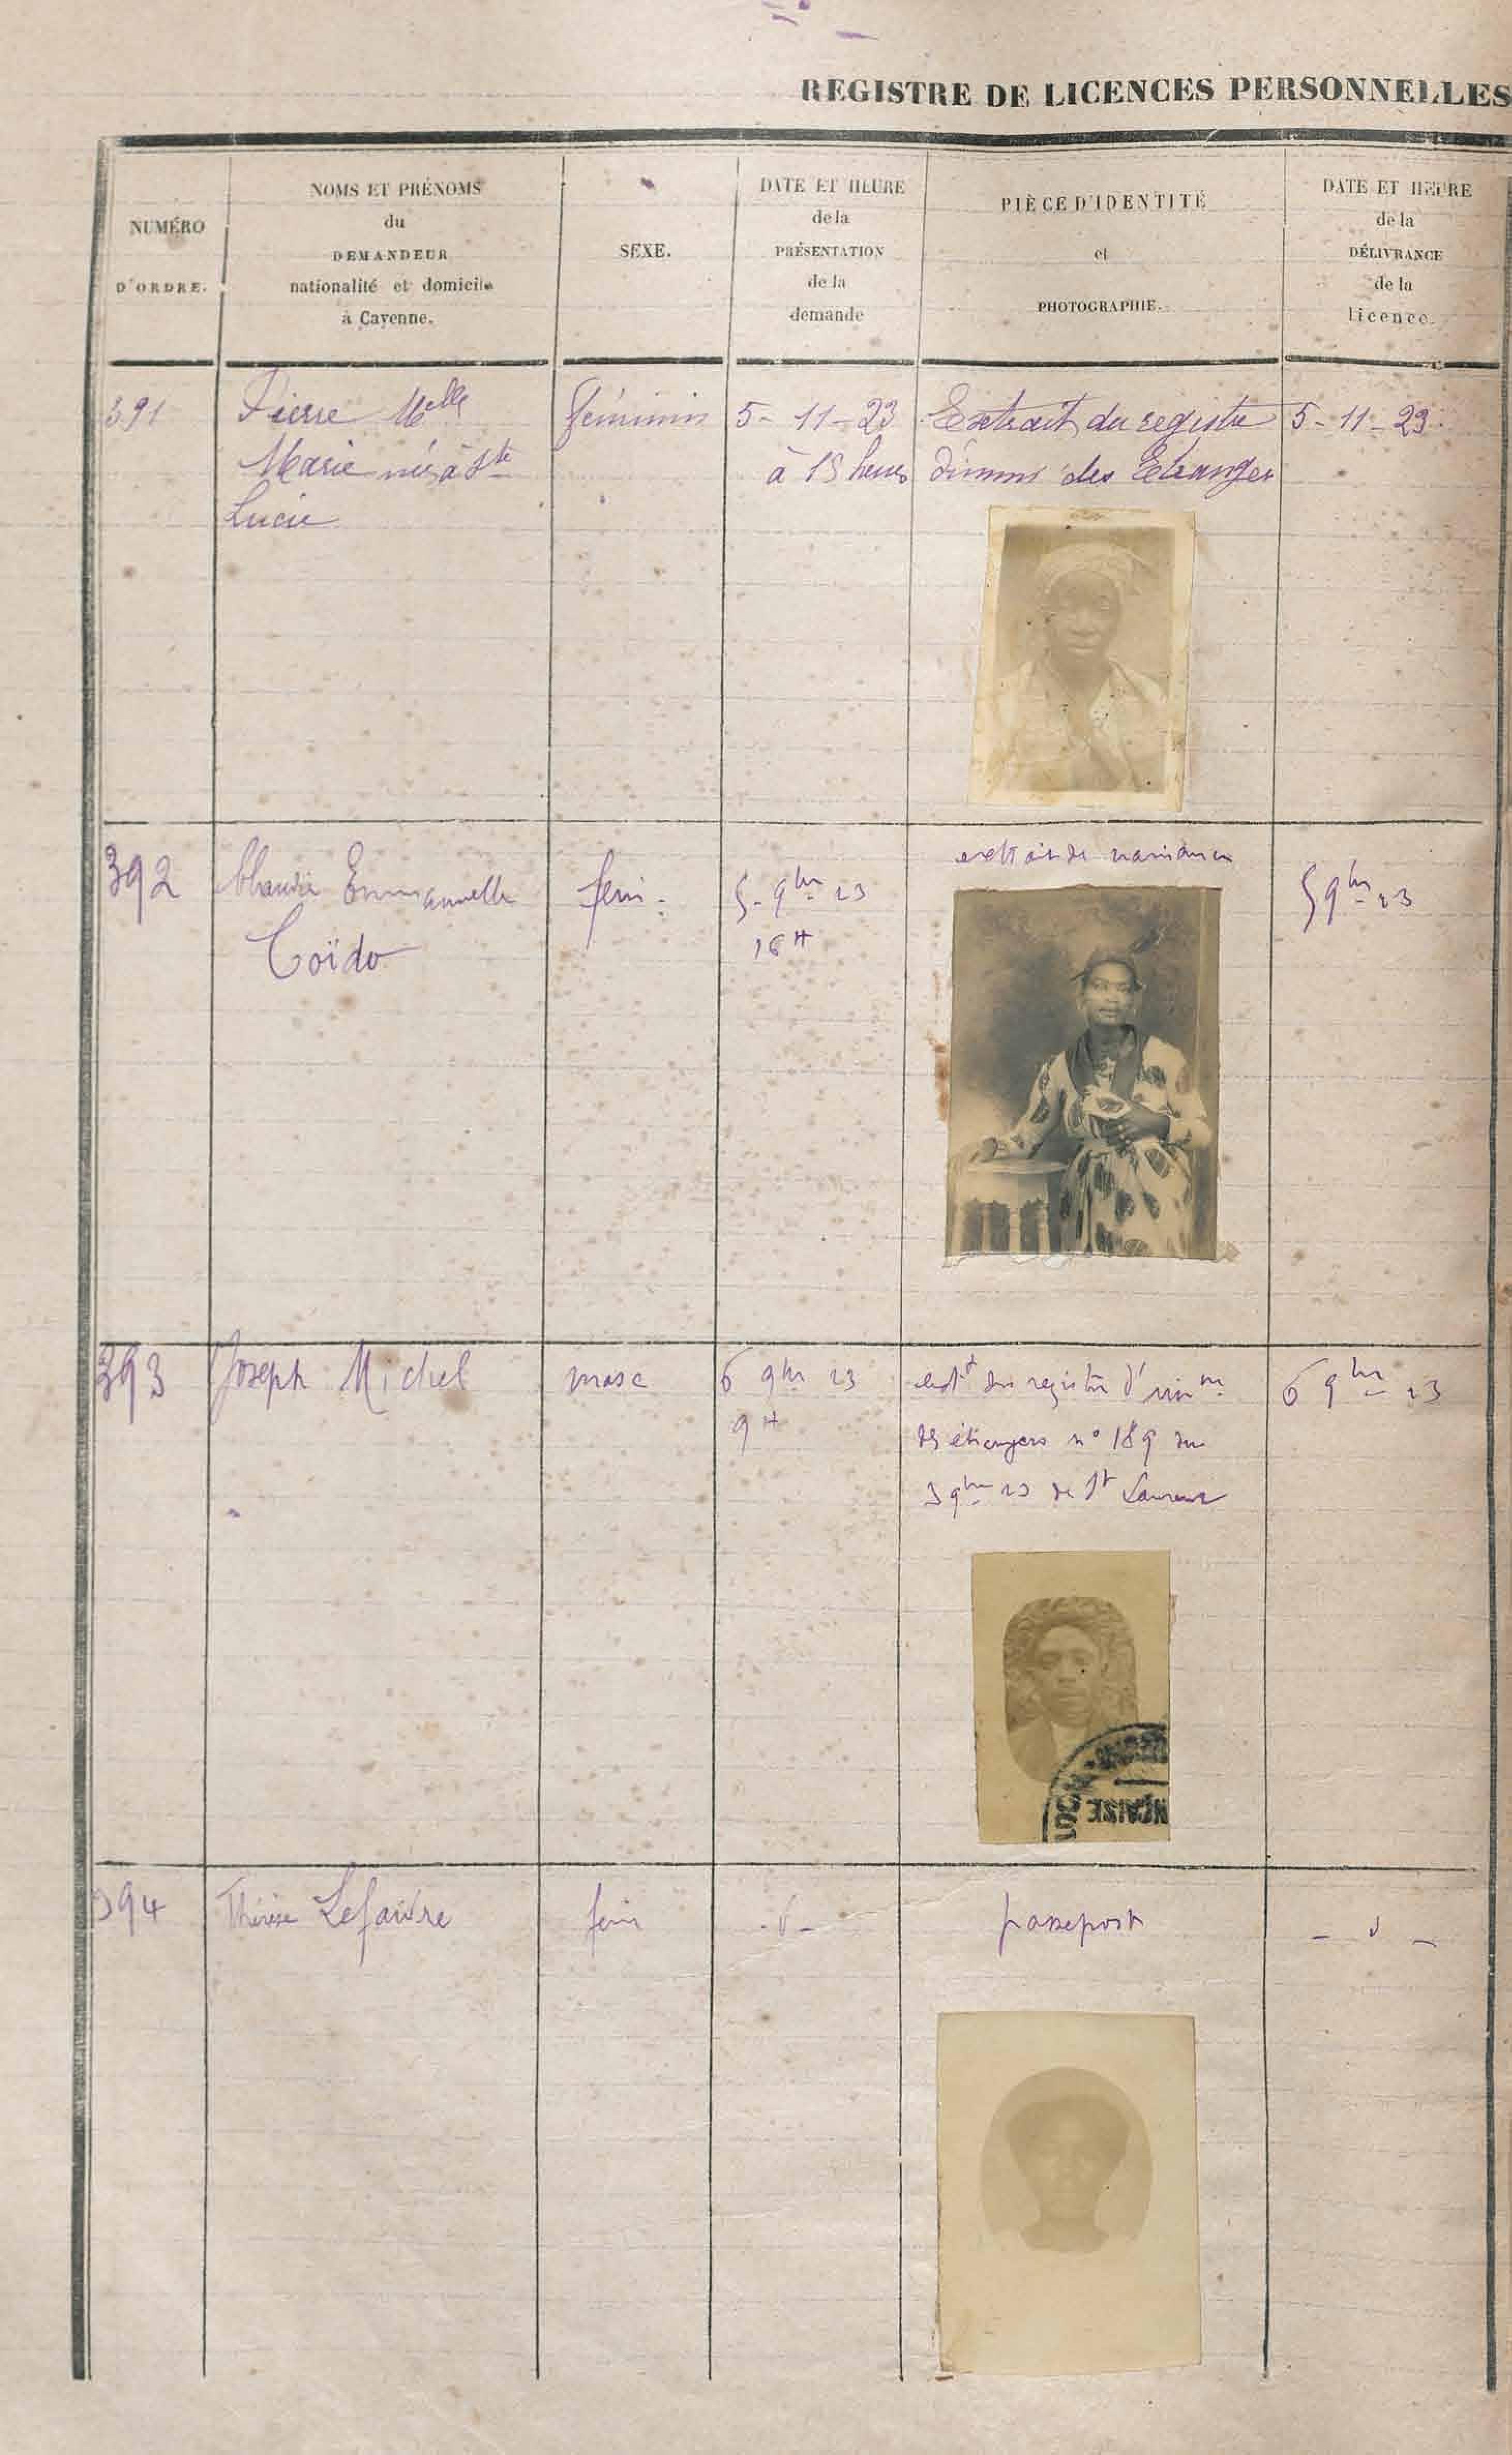 REGISTRE DE LICENCES PERSONNELLES
NUMÉRO
D'ORDRE.
NOMS ET PRÉNOMS
du
DEMANDEUR
nationalité et domicile
à Cayenne.
SEXE.
DATE ET HEURE
de la
PRÉSENTATION
de la
demande
PIÈCE D'IDENTITÉ
et
PHOTOGRAPHIE.
DATE ET HEURE
de la
DÉLIVRANCE
de la
licence.
391
Pierre Melle
Marie née à Ste
Lucie
féminin
5-11-23
à 15 heures
Extrait du registre
d'imm des Etranger
5-11-23
392
Emmanuelle
Coïdo
fem.
5-9bre 23
16 H
extrait de naissance
5 9bre 23
393
Joseph Michel
masc
6 9bre 23
9 H
extt du registre d'imm
des étrangers n° 189 du
9bre 23 de St Laurent
6 9bre 23
NÇAISE
394
Thérèse Lefaivre
fem
passeport